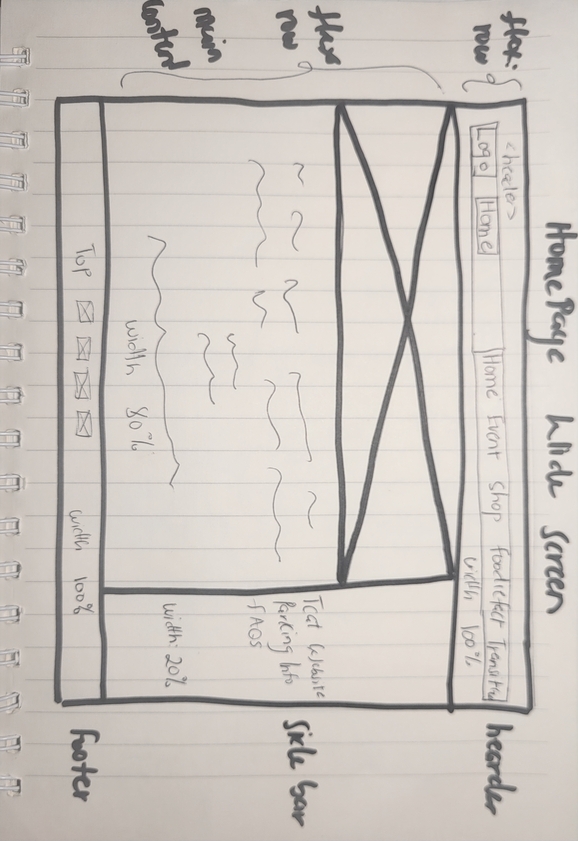 HomePage Wide Screen
flex: row
<header>
Logo Home Home Event Shop
width 100%
hearder
flex row
main content
Tcat Website
Parking Info
FAQS
width: 20%
side bar
width 80%
Top width 100%
Footer